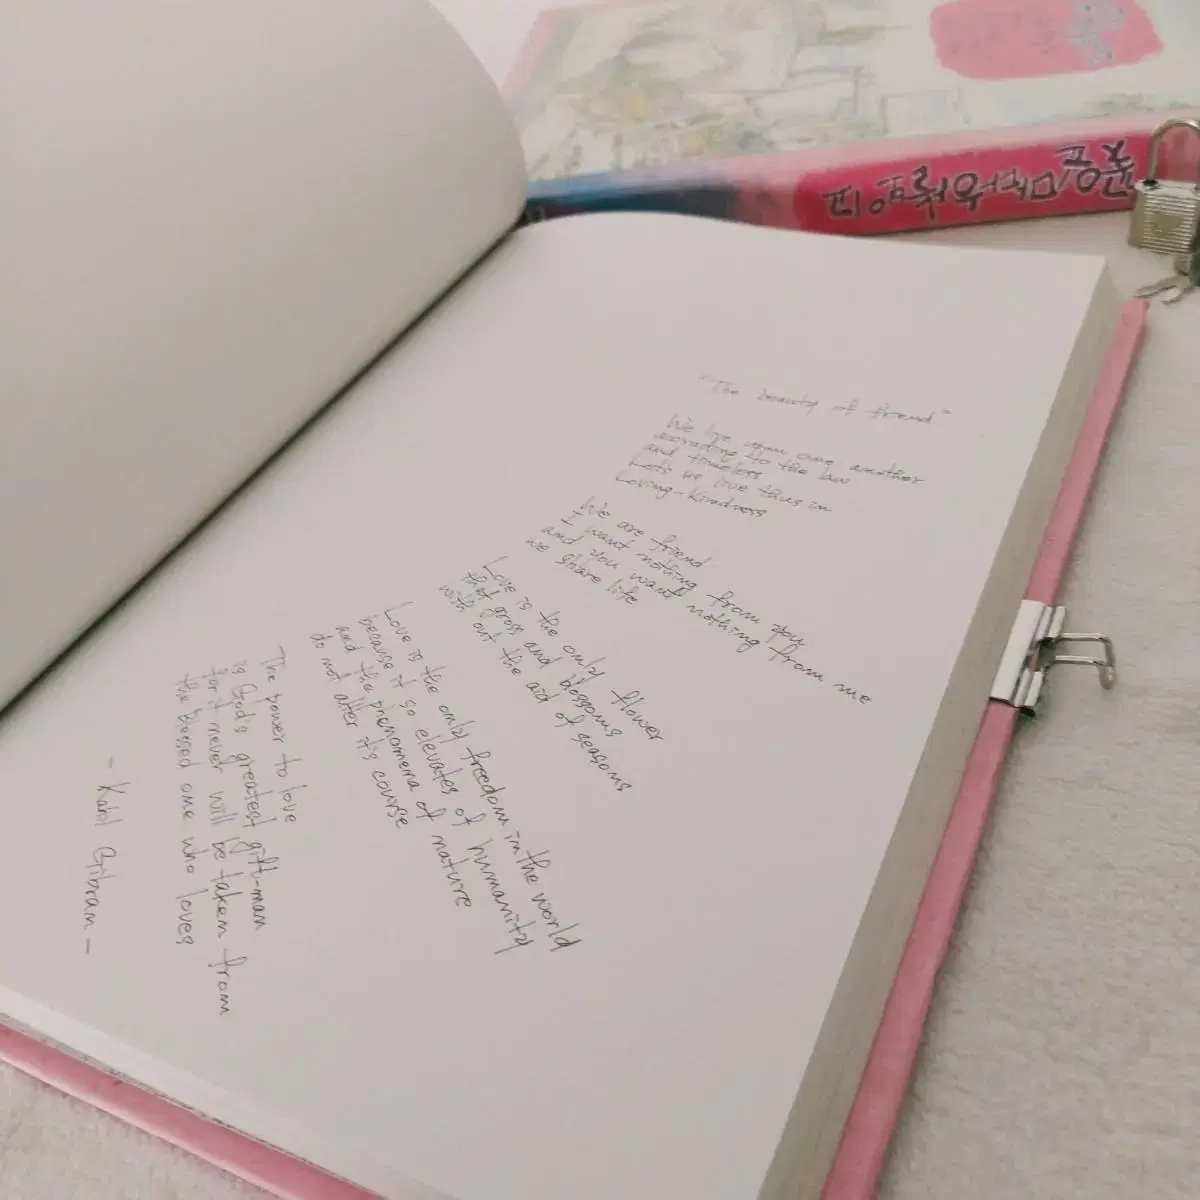 "The beauty of friend"
We live upon one another
according to the law
and timeless
Let's us live thus in
Loving-Kindness
We are friend
I want nothing from you
and you want nothing from me
we share life
Love is the only flower
that gross and blossoms
with out the aid of seasons
Love is the only freedom in the world
because it so elevates of humanity
and the phenomena of nature
do not alter it's course
The power to love
is God's greatest gift-man
for it never will be taken from
the blessed one who loves
- Kahil Gibran -